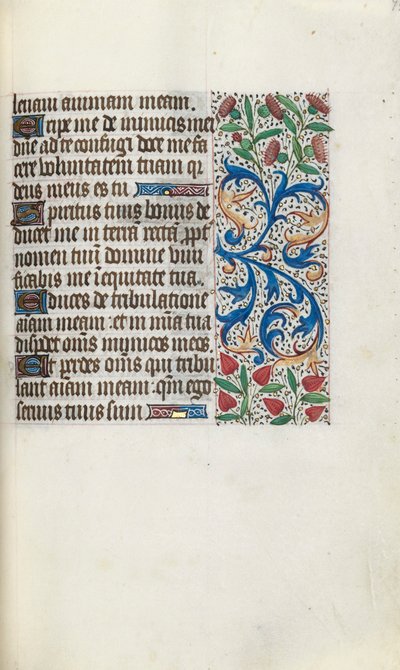 levavi animam meam.
Eripe me de inimicis mei
dñe ad te confugi doce me fa
cere voluntatem tuam q̃
deus meus es tu
Spiritus tuus bonus de
ducet me in terrã rectã ppt̃
nomen tuũ domine vivi
ficabis me ĩ equitate tua.
Educes de tribulatione
aiam meam : et in mĩa tua
disp̃des oms̃ inimicos meos
Et perdes oms̃ qui tribu
lant aĩam meam : qm̃ ego
servus tuus sum